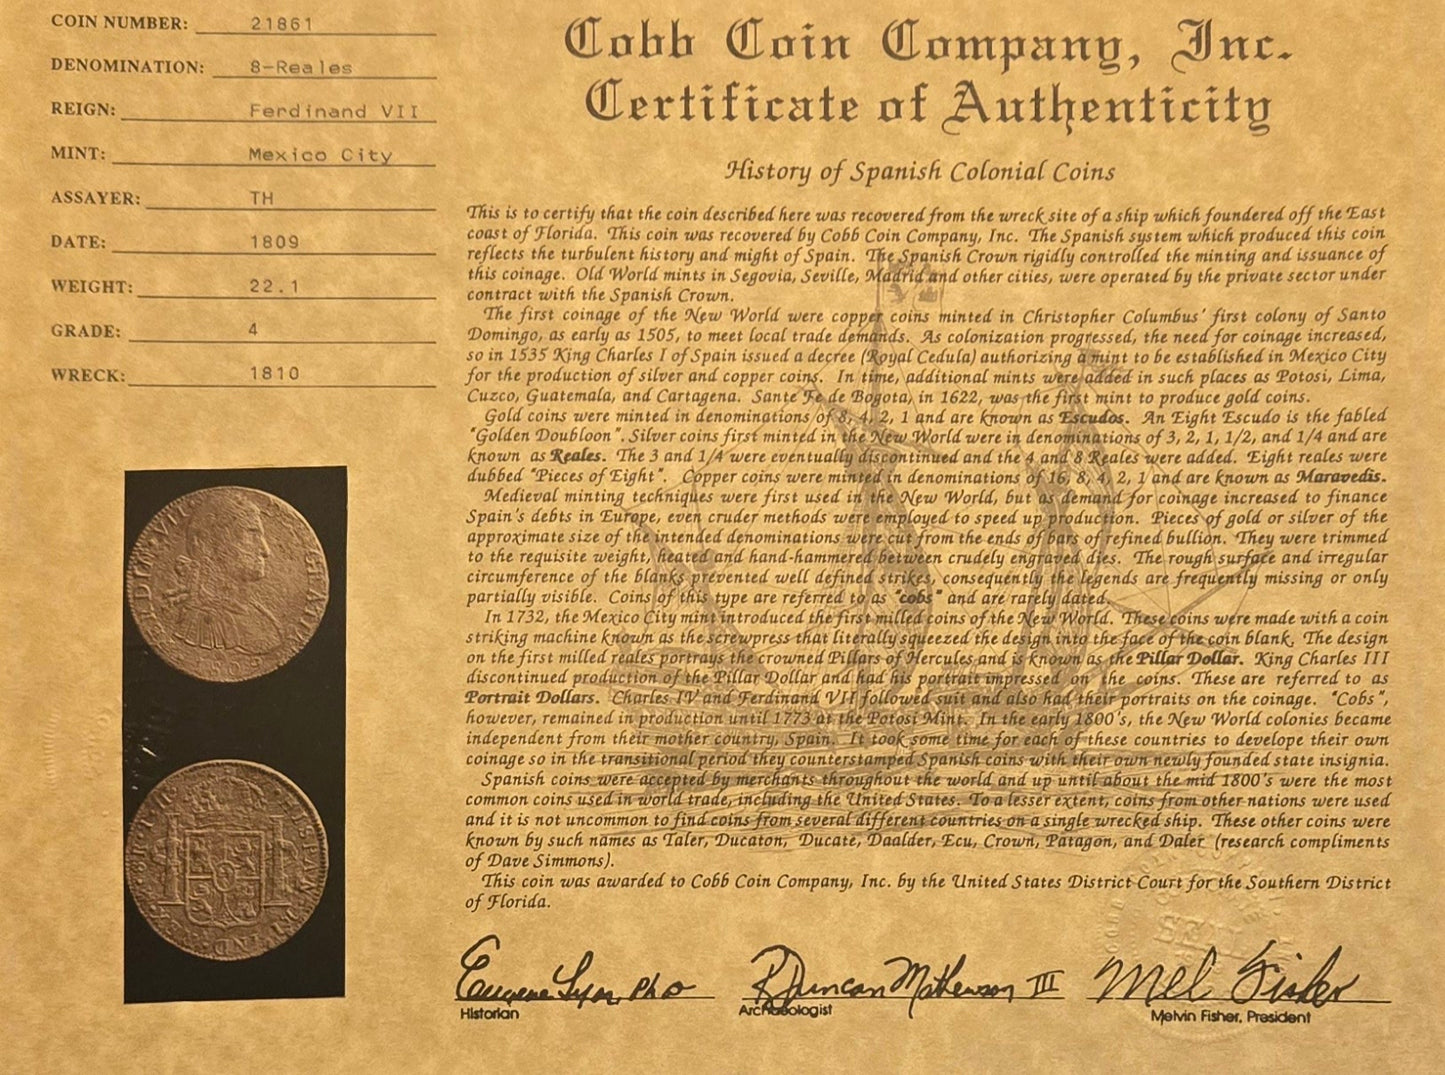 COIN NUMBER: 21861
DENOMINATION: 8-Reales
REIGN: Ferdinand VII
MINT: Mexico City
ASSAYER: TH
DATE: 1809
WEIGHT: 22.1
GRADE: 4
WRECK: 1810
Cobb Coin Company, Inc.
Certificate of Authenticity
History of Spanish Colonial Coins
This is to certify that the coin described here was recovered from the wreck site of a ship which foundered off the East
coast of Florida. This coin was recovered by Cobb Coin Company, Inc. The Spanish system which produced this coin
reflects the turbulent history and might of Spain. The Spanish Crown rigidly controlled the minting and issuance of
this coinage. Old World mints in Segovia, Seville, Madrid and other cities, were operated by the private sector under
contract with the Spanish Crown.
The first coinage of the New World were copper coins minted in Christopher Columbus' first colony of Santo
Domingo, as early as 1505, to meet local trade demands. As colonization progressed, the need for coinage increased,
so in 1535 King Charles I of Spain issued a decree (Royal Cedula) authorizing a mint to be established in Mexico City
for the production of silver and copper coins. In time, additional mints were added in such places as Potosi, Lima,
Cuzco, Guatemala, and Cartagena. Sante Fe de Bogota, in 1622, was the first mint to produce gold coins.
Gold coins were minted in denominations of 8, 4, 2, 1 and are known as Escudos. An Eight Escudo is the fabled
"Golden Doubloon". Silver coins first minted in the New World were in denominations of 3, 2, 1, 1/2, and 1/4 and are
known as Reales. The 3 and 1/4 were eventually discontinued and the 4 and 8 Reales were added. Eight reales were
dubbed "Pieces of Eight". Copper coins were minted in denominations of 16, 8, 4, 2, 1 and are known as Maravedis.
Medieval minting techniques were first used in the New World, but as demand for coinage increased to finance
Spain's debts in Europe, even cruder methods were employed to speed up production. Pieces of gold or silver of the
approximate size of the intended denominations were cut from the ends of bars of refined bullion. They were trimmed
to the requisite weight, heated and hand-hammered between crudely engraved dies. The rough surface and irregular
circumference of the blanks prevented well defined strikes, consequently the legends are frequently missing or only
partially visible. Coins of this type are referred to as "cobs" and are rarely dated.
In 1732, the Mexico City mint introduced the first milled coins of the New World. These coins were made with a coin
striking machine known as the screwpress that literally squeezed the design into the face of the coin blank. The design
on the first milled reales portrays the crowned Pillars of Hercules and is known as the Pillar Dollar. King Charles III
discontinued production of the Pillar Dollar and had his portrait impressed on the coins. These are referred to as
Portrait Dollars. Charles IV and Ferdinand VII followed suit and also had their portraits on the coinage. "Cobs",
however, remained in production until 1773 at the Potosi Mint. In the early 1800's, the New World colonies became
independent from their mother country, Spain. It took some time for each of these countries to develope their own
coinage so in the transitional period they counterstamped Spanish coins with their own newly founded state insignia.
Spanish coins were accepted by merchants throughout the world and up until about the mid 1800's were the most
common coins used in world trade, including the United States. To a lesser extent, coins from other nations were used
and it is not uncommon to find coins from several different countries on a single wrecked ship. These other coins were
known by such names as Taler, Ducaton, Ducate, Daalder, Ecu, Crown, Patagon, and Daler (research compliments
of Dave Simmons).
This coin was awarded to Cobb Coin Company, Inc. by the United States District Court for the Southern District
of Florida.
Eugene Lyon, PhD
Historian
R Duncan Mathewson III
Archaeologist
Mel Fisher
Melvin Fisher, President